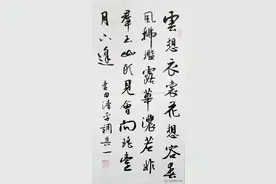 雲想衣裳花想容春
風拂檻露華濃若非
羣玉山頭見會向瑤臺
月下逢
李白清平調其一